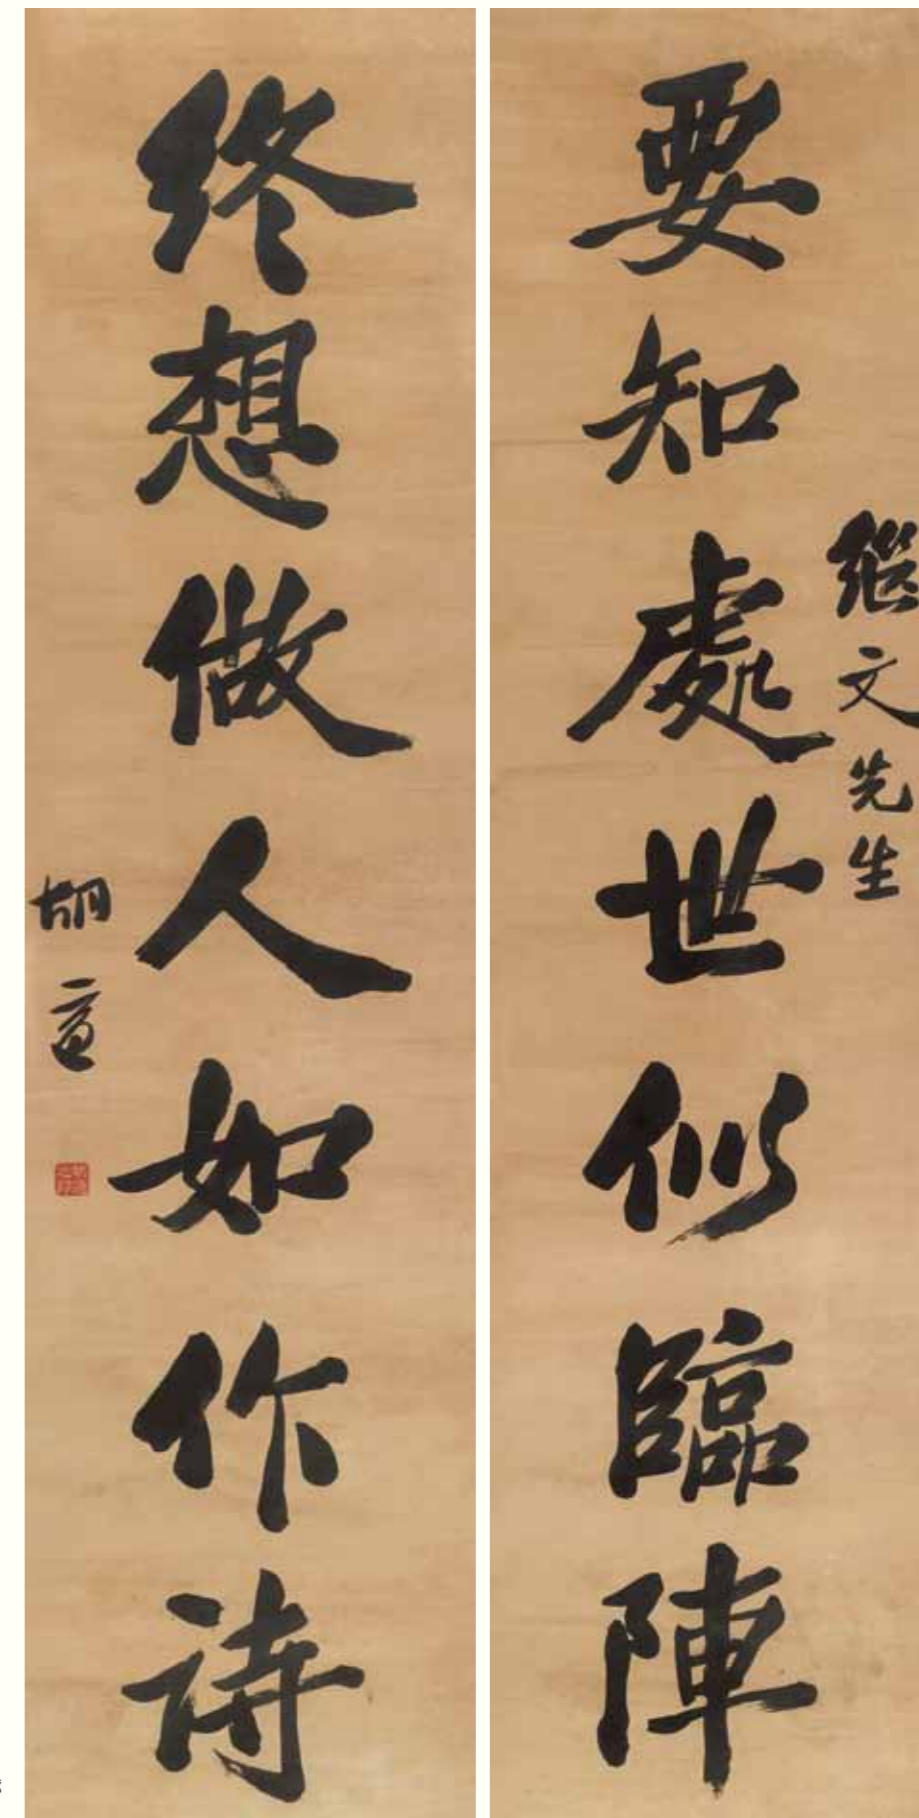 繼文先生
要知處世似臨陣
終想做人如作詩
胡